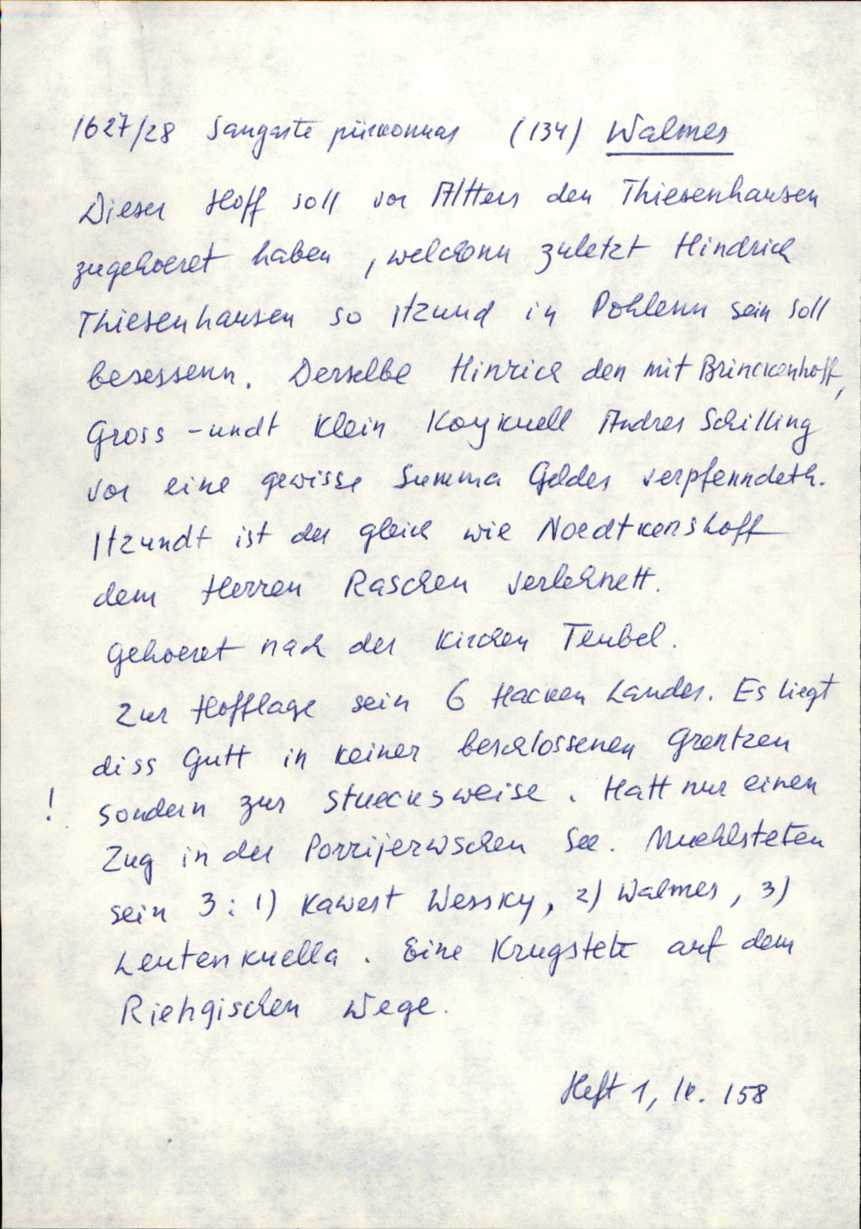 1627/28 Sangaste piirkonnas (134) Walmes
Dieser Hoff soll vor Alters den Thiesenhausen
zugehoeret haben, welchenn zuletzt Hindrich
Thiesenhausen so itzund in Pohlenn sein soll
besessenn. Derselbe Hinrich den mit Brinckenhoff,
Gross-undt Klein Koykuell Andres Schilling
vor eine gewisse Summa Geldes verpfenndeth.
Itzundt ist der gleich wie Noedtkenshoff
dem Herren Raschen verlehnett.
Gehoeret nach der Kirchen Teubel.
Zur Hofflage sein 6 Hacken Landes. Es liegt
diss Gutt in keiner beschlossenen Grentzen
! sondern zur stuecksweise. Hatt nur einen
Zug in der Porrijerwschen See. Muehlsteten
sein 3: 1) Kawest Wessky, 2) Walmes, 3)
Leutenkuella. Eine Krugstete auf dem
Riehgischen Wege.
Heft 1, lk. 158